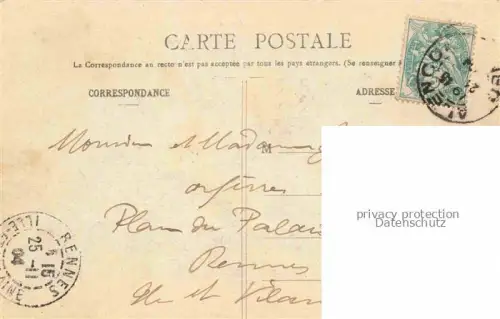 CARTE POSTALE
La Correspondance au recto n'est pas acceptée par tous les pays étrangers. (Se renseigner
CORRESPONDANCE
ADRESSE
ALENCO
M
Monsieur et Madame
Place du Palais
Rennes
Ille et Vilaine
RENNES
15
25
04
ILLE
VILAINE
privacy protection
Datenschutz